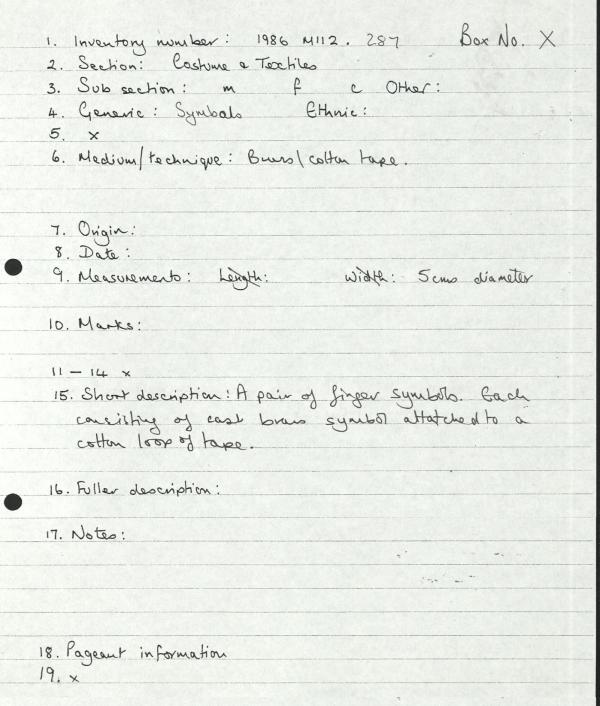 1. Inventory number: 1986 M112. 287 Box No. X
2. Section: Costume & Textiles
3. Sub section: m f c Other:
4. Generic: Symbols Ethnic:
5. x
6. Medium/technique: Brass\cotton tape.
7. Origin:
8. Date:
9. Measurements: Length: Width: 5cms diameter
10. Marks:
11 - 14 x
15. Short description: A pair of finger symbols. Each
consisting of cast brass symbol attatched to a
cotton loop of tape.
16. Fuller description:
17. Notes:
18. Pageant information
19. x